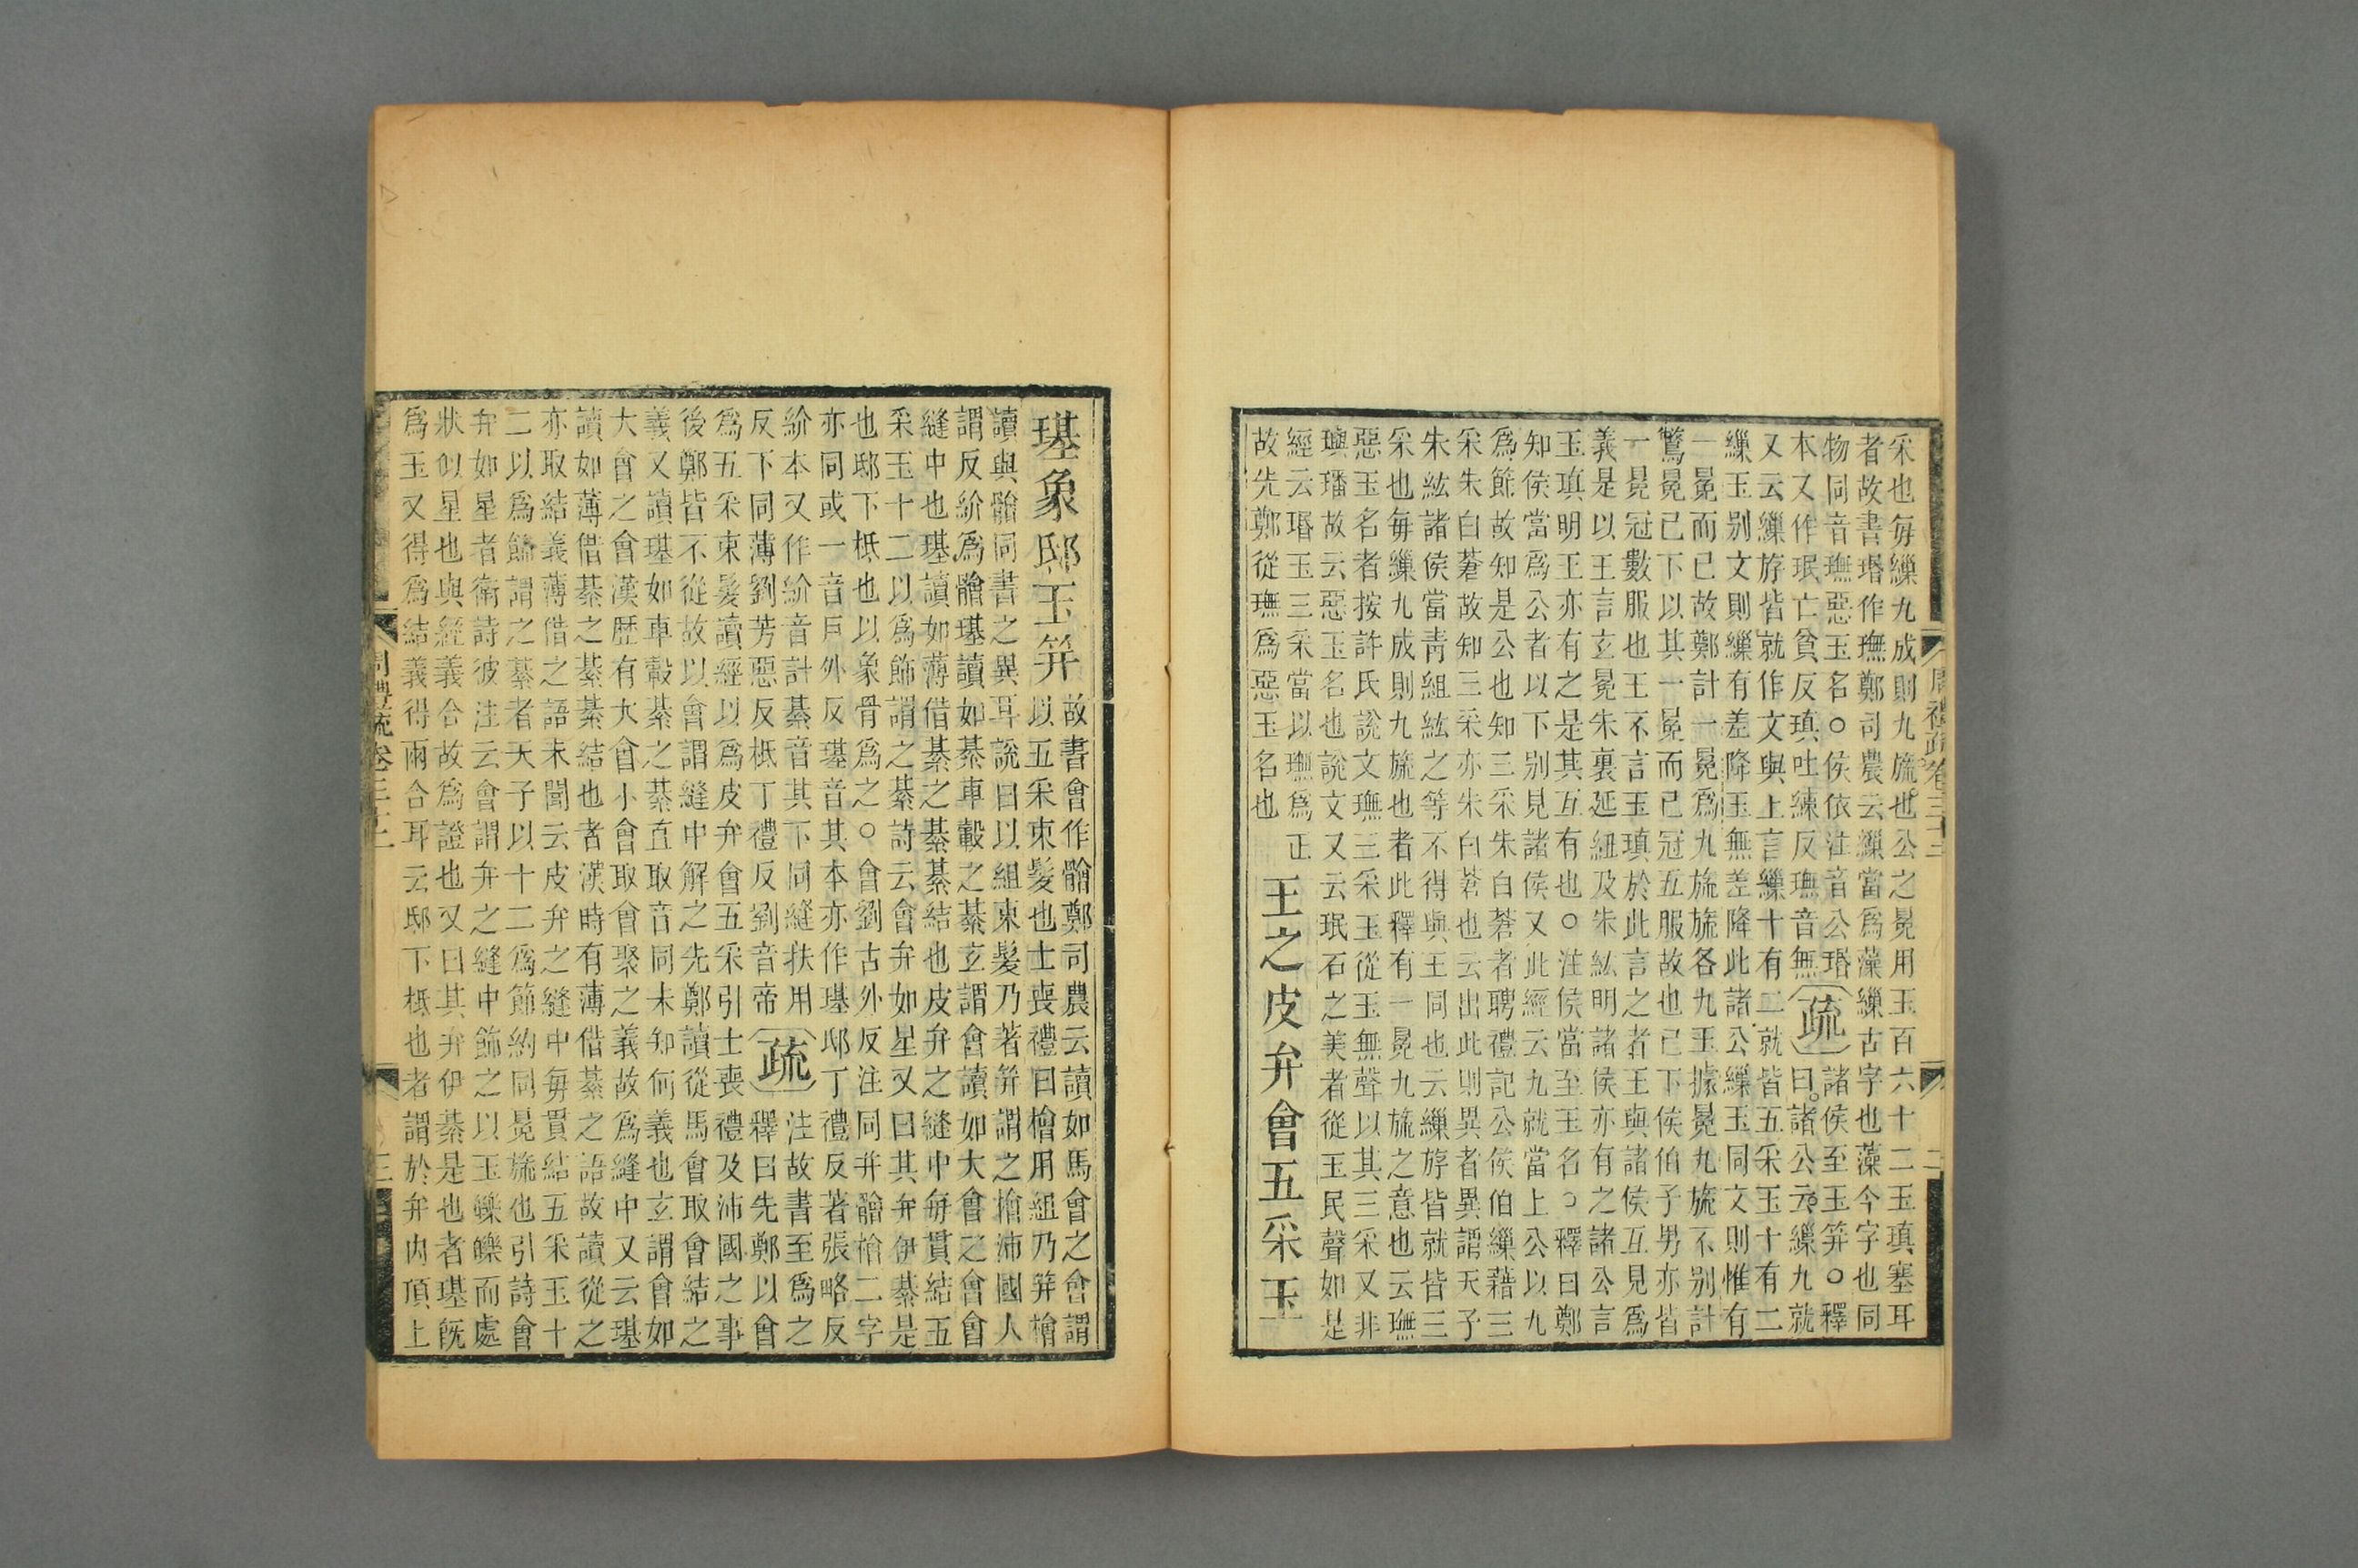 采也每繅九成則九旒也公之冕用玉百六十二玉瑱塞耳
者故書瑉作璑鄭司農云繅當爲藻繅古字也藻今字也同
物同音璑惡玉名○侯依注音公瑉
本又作珉亡貧反瑱吐練反璑音無
疏
諸侯至玉笄○釋
曰諸公云繅九就
又云繅斿皆就作文與上言繅十有二就皆五采玉十有二
繅玉别文則繅有差降玉無差降此諸公繅玉同文則惟有
一冕而已故鄭計一冕爲九旒旒各九玉據冕九旒不别計
驚冕已下以其一冕而已冠五服故也已下侯伯子男亦皆
一冕冠數服也王不言玉瑱於此言之者王與諸侯互見爲
義是以王言玄冕朱裏延紐及朱紘明諸侯亦有之諸公言
玉瑱明王亦有之是其互有也○注侯當至玉名○釋曰鄭
知侯當爲公者以下别見諸侯又此經云九就當上公以九
爲飾故知是公也知三采朱白蒼者聘禮記公侯伯繅藉三
采朱白蒼故知三采亦朱白蒼也云出此則異者異謂天子
朱紘諸侯當青組紘之等不得與王同也云繅斿皆就皆三
采也每繅九成則九旒也者此釋有一冕九旒之意也云璑
惡玉名者按許氏說文璑三采玉從玉無聲以其三采又非
璵璠故云惡玉名也說文又云珉石之美者從玉民聲如是
經云瑉玉三采當以璑爲正
故先鄭從璑爲惡玉名也
王之皮弁會五采玉
周禮疏卷三十二 二
璂象邸玉笄
故書會作䯤鄭司農云讀如馬會之會謂
以五采束髮也士喪禮曰檜用組乃笄檜
讀與䯤同書之異耳說曰以組束髮乃著笄謂之檜沛國人
謂反紒爲䯤璂讀如綦車轂之綦玄謂會讀如大會之會會
縫中也璂讀如薄借綦之綦綦結也皮弁之縫中每貫結五
采玉十二以爲飾謂之綦詩云會弁如星又曰其弁伊綦是
也邸下柢也以象骨爲之○會劉古外反注同并䯤檜二字
亦同或一音戶外反璂音其本亦作璂邸丁禮反著張略反
紒本又作紒音計綦音其下同縫扶用
反下同薄劉芳惡反柢丁禮反劉音帝
疏
注故書至爲之
釋曰先鄭以會
爲五采束髮讀經以爲皮弁會五采引士喪禮及沛國之事
後鄭皆不從故以會謂縫中解之先鄭讀從馬會取會結之
義又讀璂如車轂綦之綦直取音同未知何義也玄謂會如
大會之會漢歷有大會小會取會聚之義故爲縫中又云璂
讀如薄借綦之綦綦結也者漢時有薄借綦之語故讀從之
亦取結義薄借之語未聞云皮弁之縫中每貫結五采玉十
二以爲飾謂之綦者天子以十二爲節約同冕旒也引詩會
弁如星者衛詩彼注云會謂弁之縫中飾之以玉皪皪而處
狀似星也與經義合故爲證也又曰其弁伊綦是也者璂既
爲玉又得爲結義得兩合耳云邸下柢也者謂於弁內頂上
周禮疏卷三十二 三